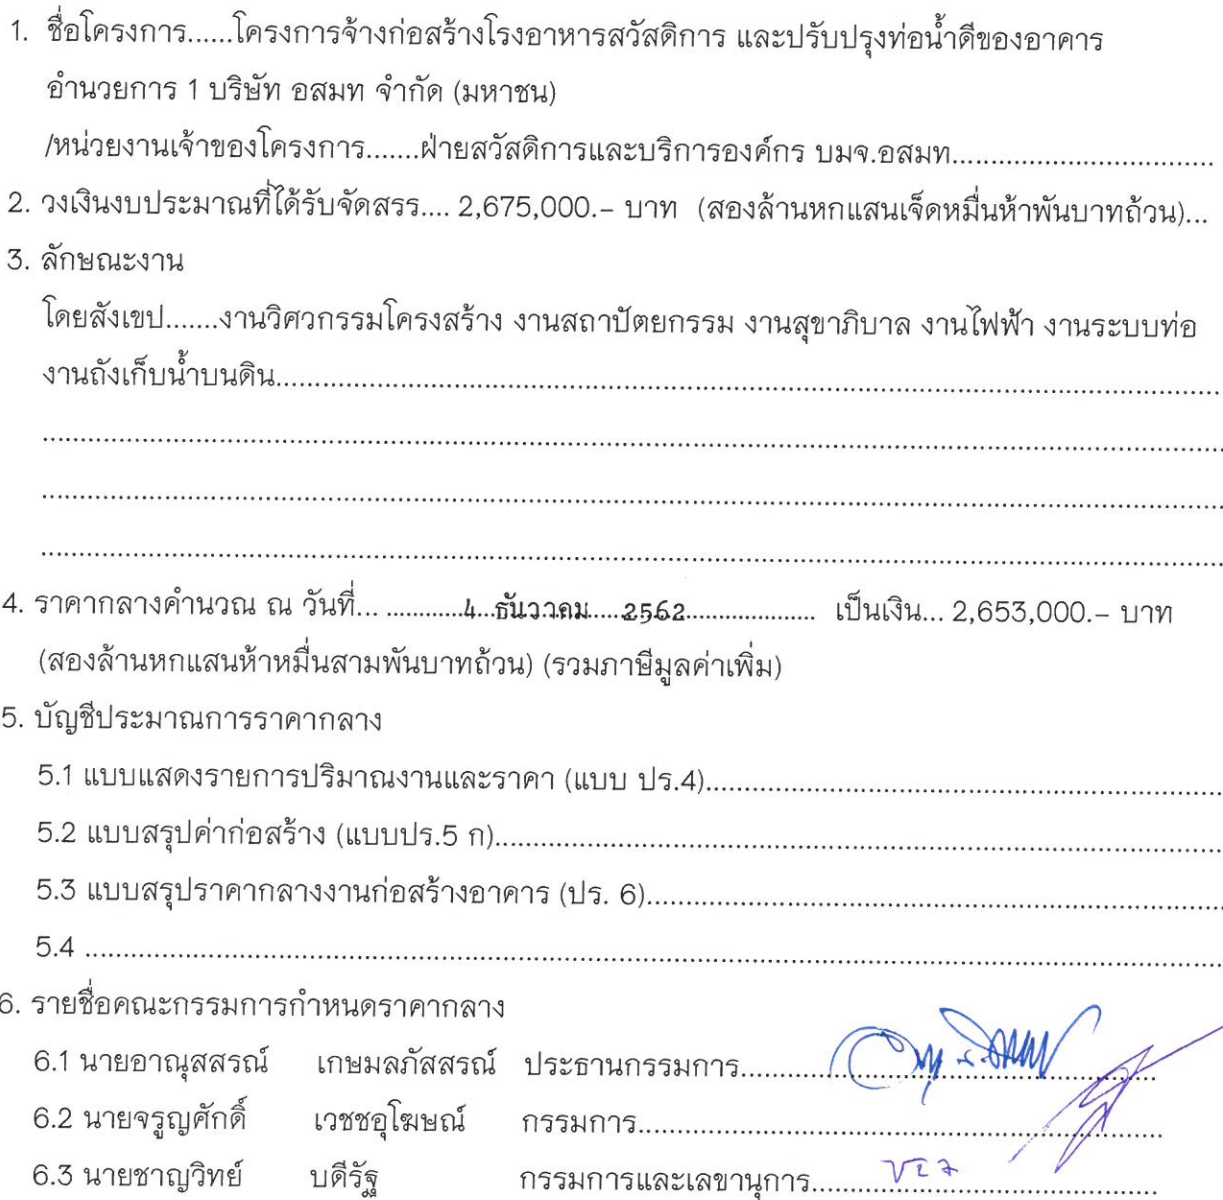 1. ชื่อโครงการ......โครงการจ้างก่อสร้างโรงอาหารสวัสดิการ และปรับปรุงท่อน้ำดีของอาคาร
อำนวยการ 1 บริษัท อสมท จำกัด (มหาชน)
/หน่วยงานเจ้าของโครงการ.......ฝ่ายสวัสดิการและบริการองค์กร บมจ.อสมท..................................
2. วงเงินงบประมาณที่ได้รับจัดสรร.... 2,675,000.– บาท (สองล้านหกแสนเจ็ดหมื่นห้าพันบาทถ้วน)...
3. ลักษณะงาน
โดยสังเขป.......งานวิศวกรรมโครงสร้าง งานสถาปัตยกรรม งานสุขาภิบาล งานไฟฟ้า งานระบบท่อ
งานถังเก็บน้ำบนดิน..........................................................................................
4. ราคากลางคำนวณ ณ วันที่... ............4...ธันวาคม.....2562................. เป็นเงิน... 2,653,000.– บาท
(สองล้านหกแสนห้าหมื่นสามพันบาทถ้วน) (รวมภาษีมูลค่าเพิ่ม)
5. บัญชีประมาณการราคากลาง
5.1 แบบแสดงรายการปริมาณงานและราคา (แบบ ปร.4)..................................................
5.2 แบบสรุปค่าก่อสร้าง (แบบปร.5 ก)..................................................
5.3 แบบสรุปราคากลางงานก่อสร้างอาคาร (ปร. 6)..................................................
5.4 ..................................................
6. รายชื่อคณะกรรมการกำหนดราคากลาง
6.1 นายอาณุสสรณ์ เกษมลภัสสรณ์ ประธานกรรมการ..................................................
6.2 นายจรูญศักดิ์ เวชชอุโฆษณ์ กรรมการ..................................................
6.3 นายชาญวิทย์ บดีรัฐ กรรมการและเลขานุการ..................................................